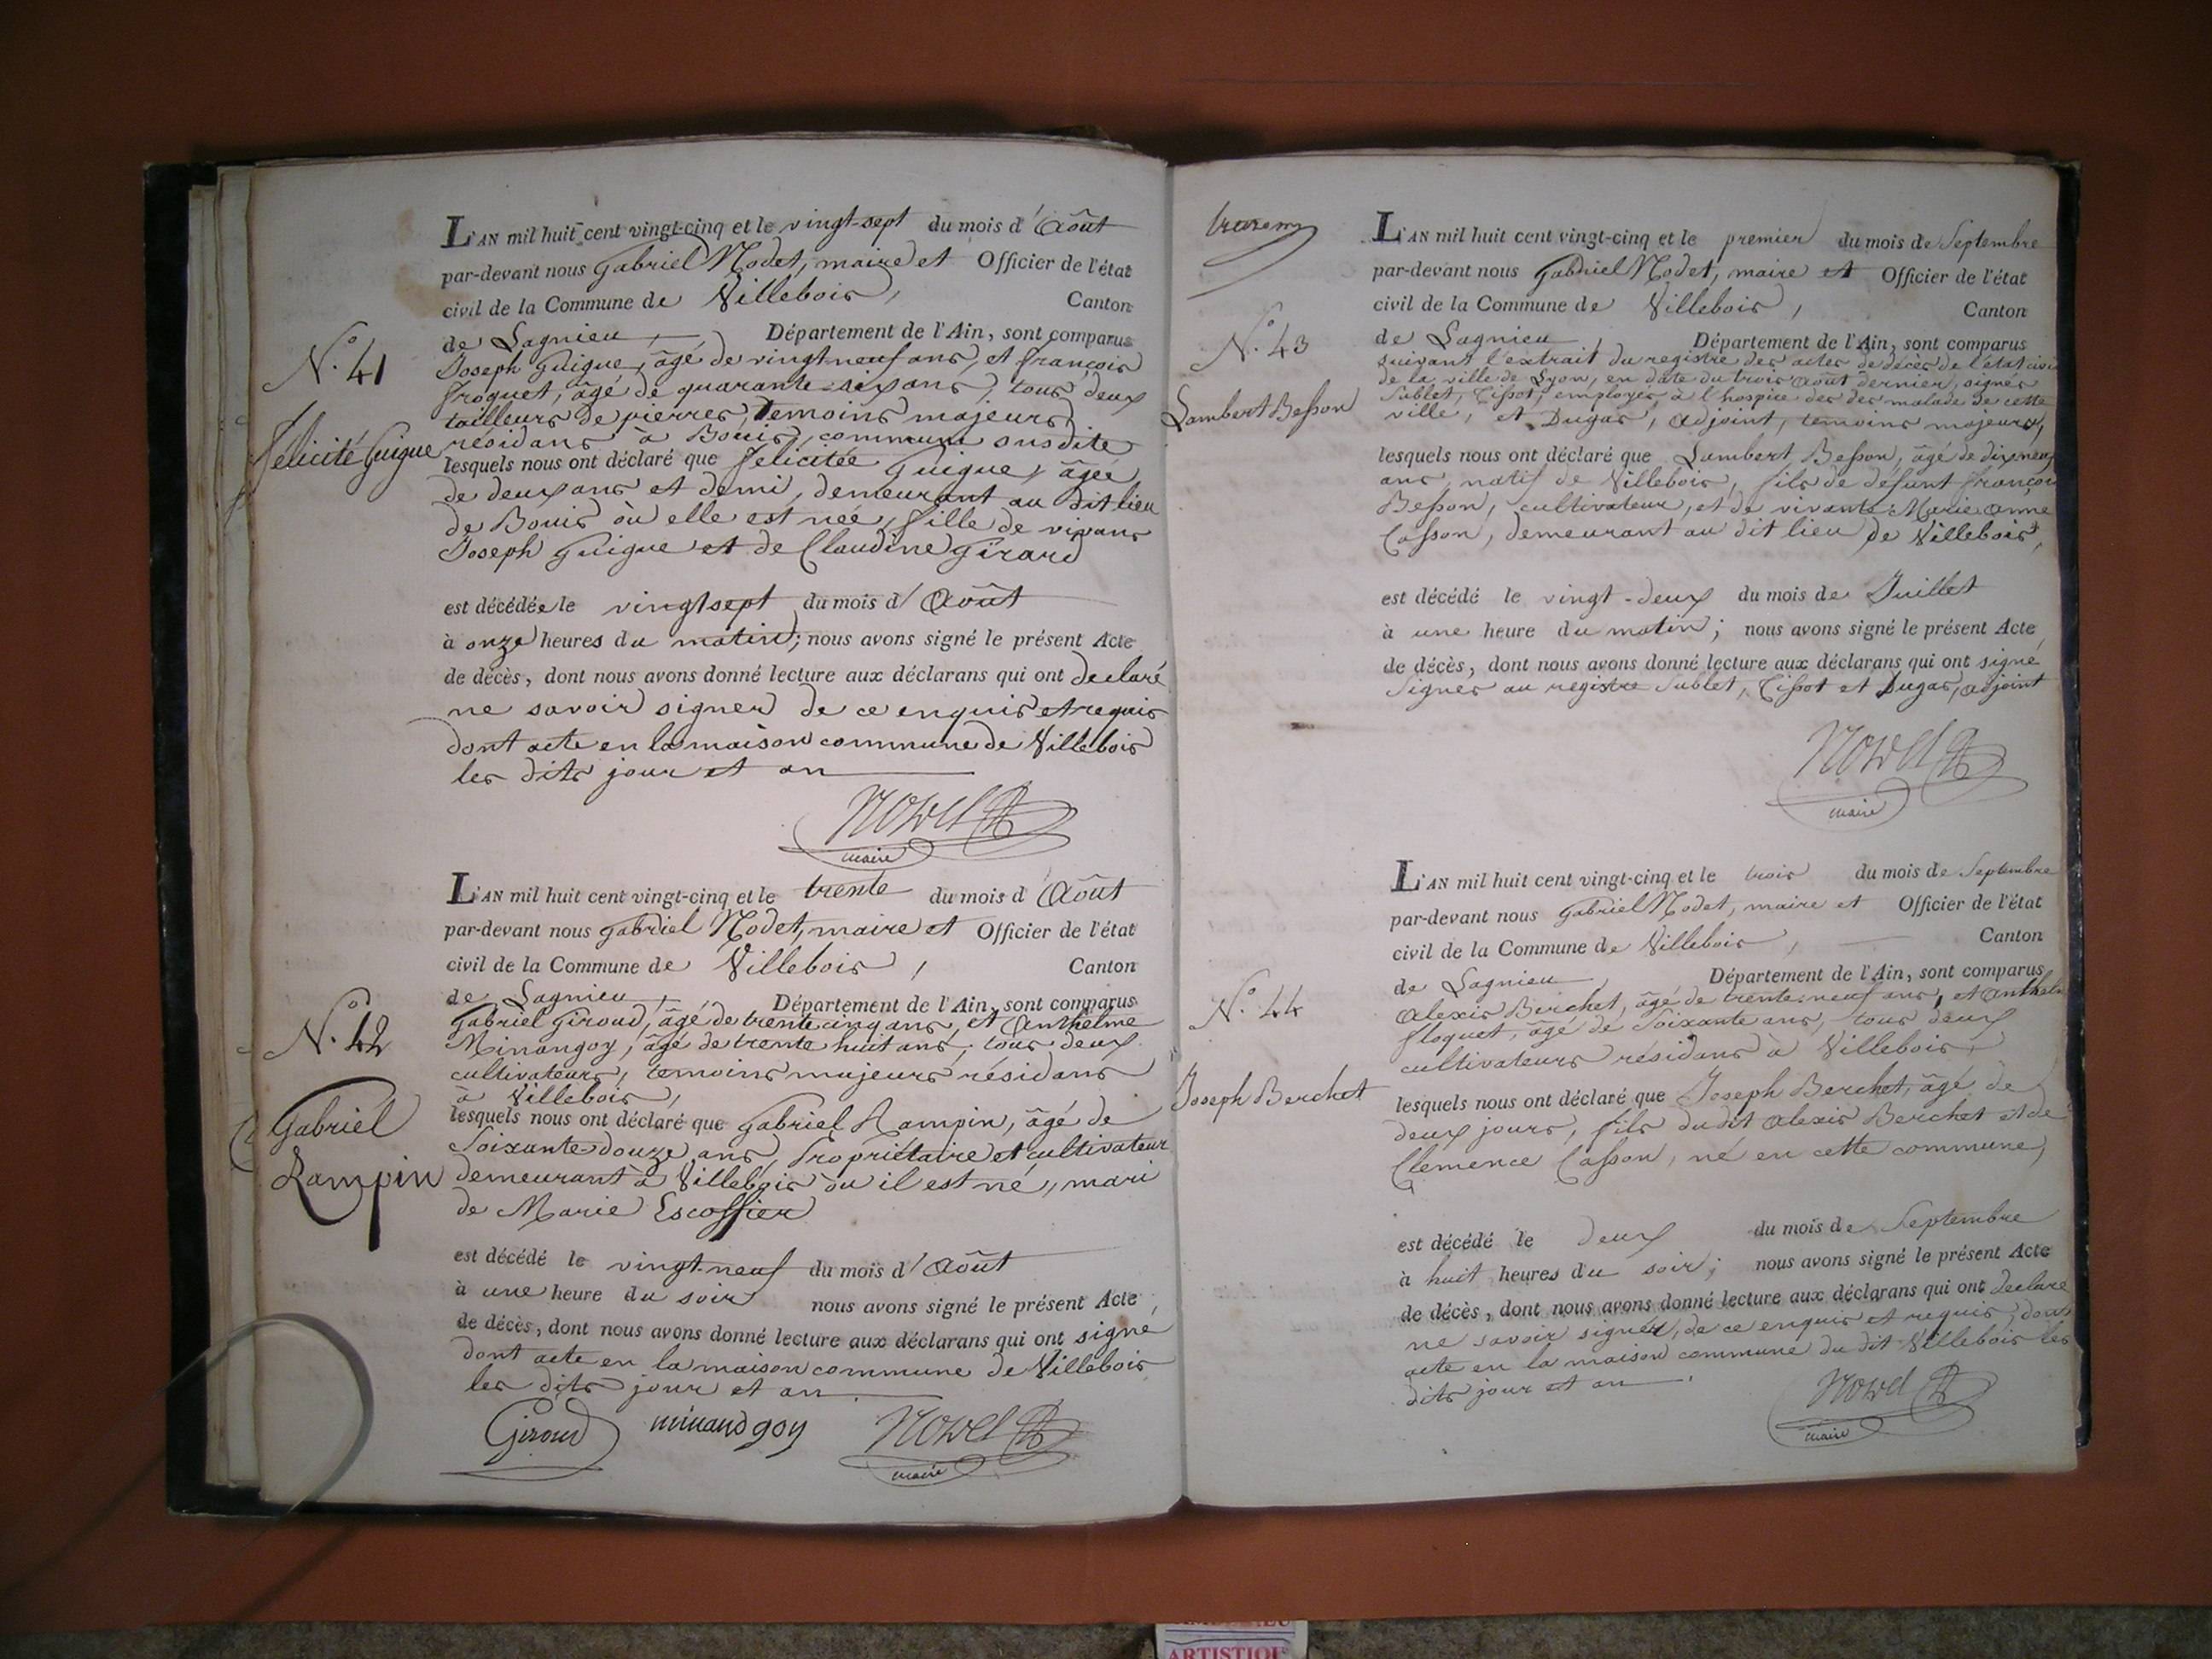 L'AN mil huit cent vingt-cinq et le vingt-sept du mois d'Août
par-devant nous Gabriel Nodet, maire et Officier de l'état
civil de la Commune de Villebois, Canton
de Lagnieu, Département de l'Ain, sont comparus
N.° 41
Joseph Guigue, âgé de vingt-neuf ans, et françois
froquet, âgé de quarante-six ans, tous deux
tailleurs de pierres, temoins majeurs
résidans à Bouis, commune susdite
Felicité Guigue
lesquels nous ont déclaré que Felicitée Guigue, âgée
de deux ans et demi, demeurant au dit lieu
de Bouis où elle est née, fille de vivans
Joseph Guigue et de Claudine Girard
est décédée le vingt sept du mois d'Août
à onze heures du matin; nous avons signé le présent Acte
de décès, dont nous avons donné lecture aux déclarans qui ont declaré
ne savoir signer de ce enquis et requis
dont acte en la maison commune de Villebois
les dits jour et an
Nodet
maire
L'AN mil huit cent vingt-cinq et le trente du mois d'Août
par-devant nous Gabriel Nodet, maire et Officier de l'état
civil de la Commune de Villebois, Canton
de Lagnieu, Département de l'Ain, sont comparus
N.° 42
Gabriel Giroud, âgé de trente cinq ans, et Anthelme
Minangoy, âgé de trente huit ans, tous deux
cultivateurs, temoins majeurs résidans
à Villebois,
Gabriel
Rampin
lesquels nous ont déclaré que Gabriel Rampin, âgé de
Soixante-douze ans, Propriétaire et cultivateur
demeurant à Villebois où il est né, mari
de Marie Escoffier
est décédé le vingt-neuf du mois d'Août
à une heure du soir nous avons signé le présent Acte,
de décès, dont nous avons donné lecture aux déclarans qui ont signé
dont acte en la maison commune de Villebois
les dits jour et an.
Giroud minandgoy Nodet
maire
L'AN mil huit cent vingt-cinq et le premier du mois de Septembre
par-devant nous Gabriel Nodet, maire et Officier de l'état
civil de la Commune de Villebois, Canton
de Lagnieu, Département de l'Ain, sont comparus
N.° 43
suivant l'extrait du registre des actes de décès de l'état civil
de la ville de Lyon, en date du trois août dernier, signés
Sublet, Tissot, employés à l'hospice des des malade de cette
ville, et Dugas, adjoint, temoins majeurs,
Lambert Besson
lesquels nous ont déclaré que Lambert Besson, âgé de dix neuf
ans, natif de Villebois, fils de défunt François
Besson, cultivateur, et de vivante Marie Anne
Casson, demeurant au dit lieu de Villebois,
est décédé le vingt-deux du mois de Juillet
à une heure du matin; nous avons signé le présent Acte,
de décès, dont nous avons donné lecture aux déclarans qui ont signé
Signés au registre Sublet, Tissot et Dugas, adjoint
Nodet
maire
L'AN mil huit cent vingt-cinq et le trois du mois de Septembre
par-devant nous Gabriel Nodet, maire et Officier de l'état
civil de la Commune de Villebois, Canton
de Lagnieu, Département de l'Ain, sont comparus
N.° 44
Alexis Berchet, âgé de trente-neuf ans, et Anthelme
floquet, âgé de Soixante ans, tous deux
cultivateurs résidans à Villebois,
Joseph Berchet
lesquels nous ont déclaré que Joseph Berchet, âgé de
deux jours, fils dudit Alexis Berchet et de
Clemence Casson, né en cette commune,
est décédé le deux du mois de Septembre
à huit heures du soir; nous avons signé le présent Acte
de décès, dont nous avons donné lecture aux déclarans qui ont declaré
ne savoir signer, de ce enquis et requis, dont
acte en la maison commune du dit Villebois les
dits jour et an.
Nodet
maire
ARTISTIQUE